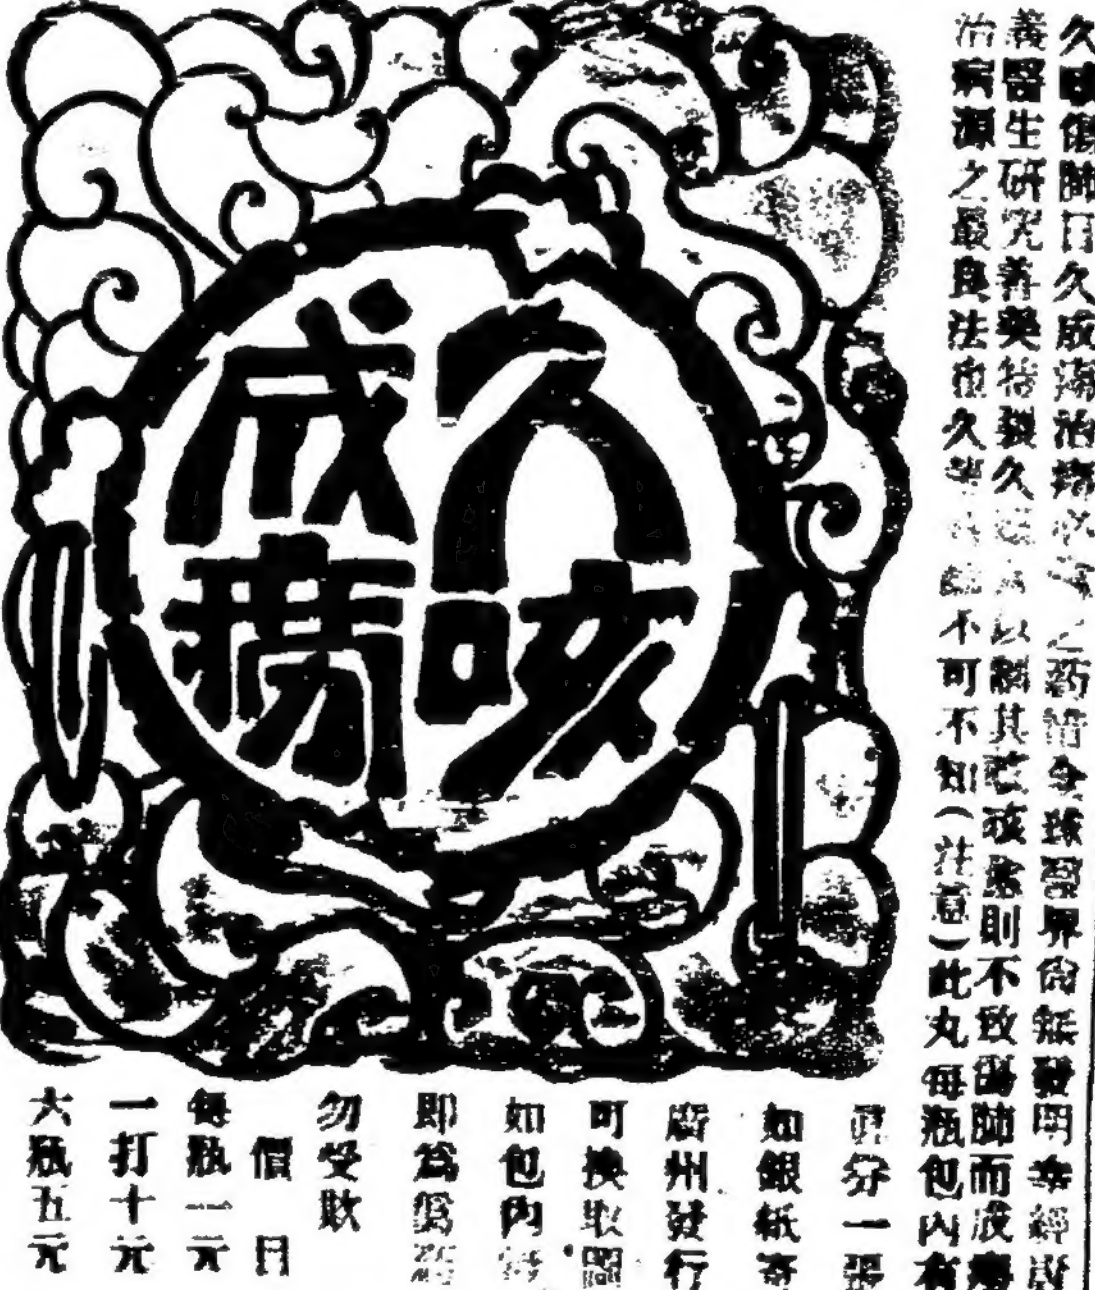 久咳傷肺日久成癆治癆之药皆全球醫界尙無發明幸經
義醫生研究善美特製久以制其咳咳愈則不致傷肺而成癆
治病源之最良法也久不可不知(注意)此丸每瓶包內有
久咳
成癆
分一張
如銀紙寄
廣州發行
可換取圖
如包內
即爲僞
勿受欺
價目
每瓶一元
一打十元
六瓶五元